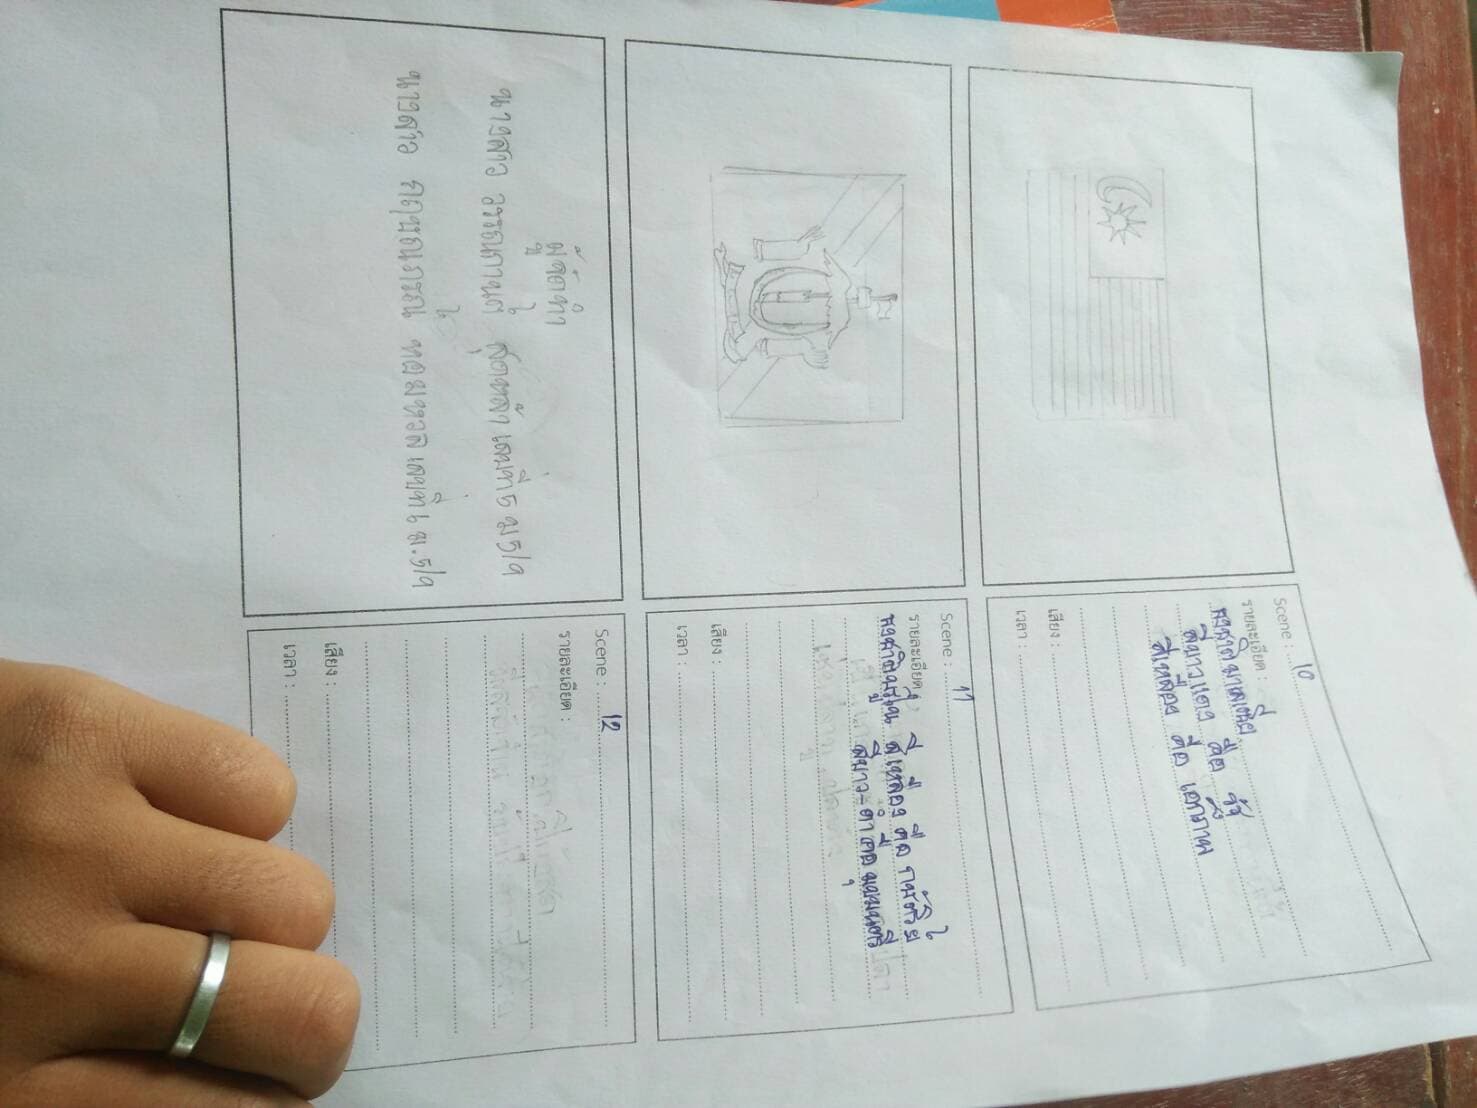 Scene : 10
รายละเอียด :
ธงชาติมาเลเซีย
สีขาวแดง คือ รัฐ
สีเหลือง คือ เอกภาพ
เสียง :
เวลา :
Scene : 11
รายละเอียด :
ธงชาติบรูไน สีเหลือง คือ กษัตริย์
สีขาว-ดำ คือ มุขมนตรี
เสียง :
เวลา :
ผู้จัดทำ
นางสาว วรรณกานต์ สุดหล้า เลขที่ 5 ม 5/9
นางสาว กฤษณภรณ์ หอมหวล เลขที่ 6 ม.5/9
Scene : 12
รายละเอียด :
เสียง :
เวลา :